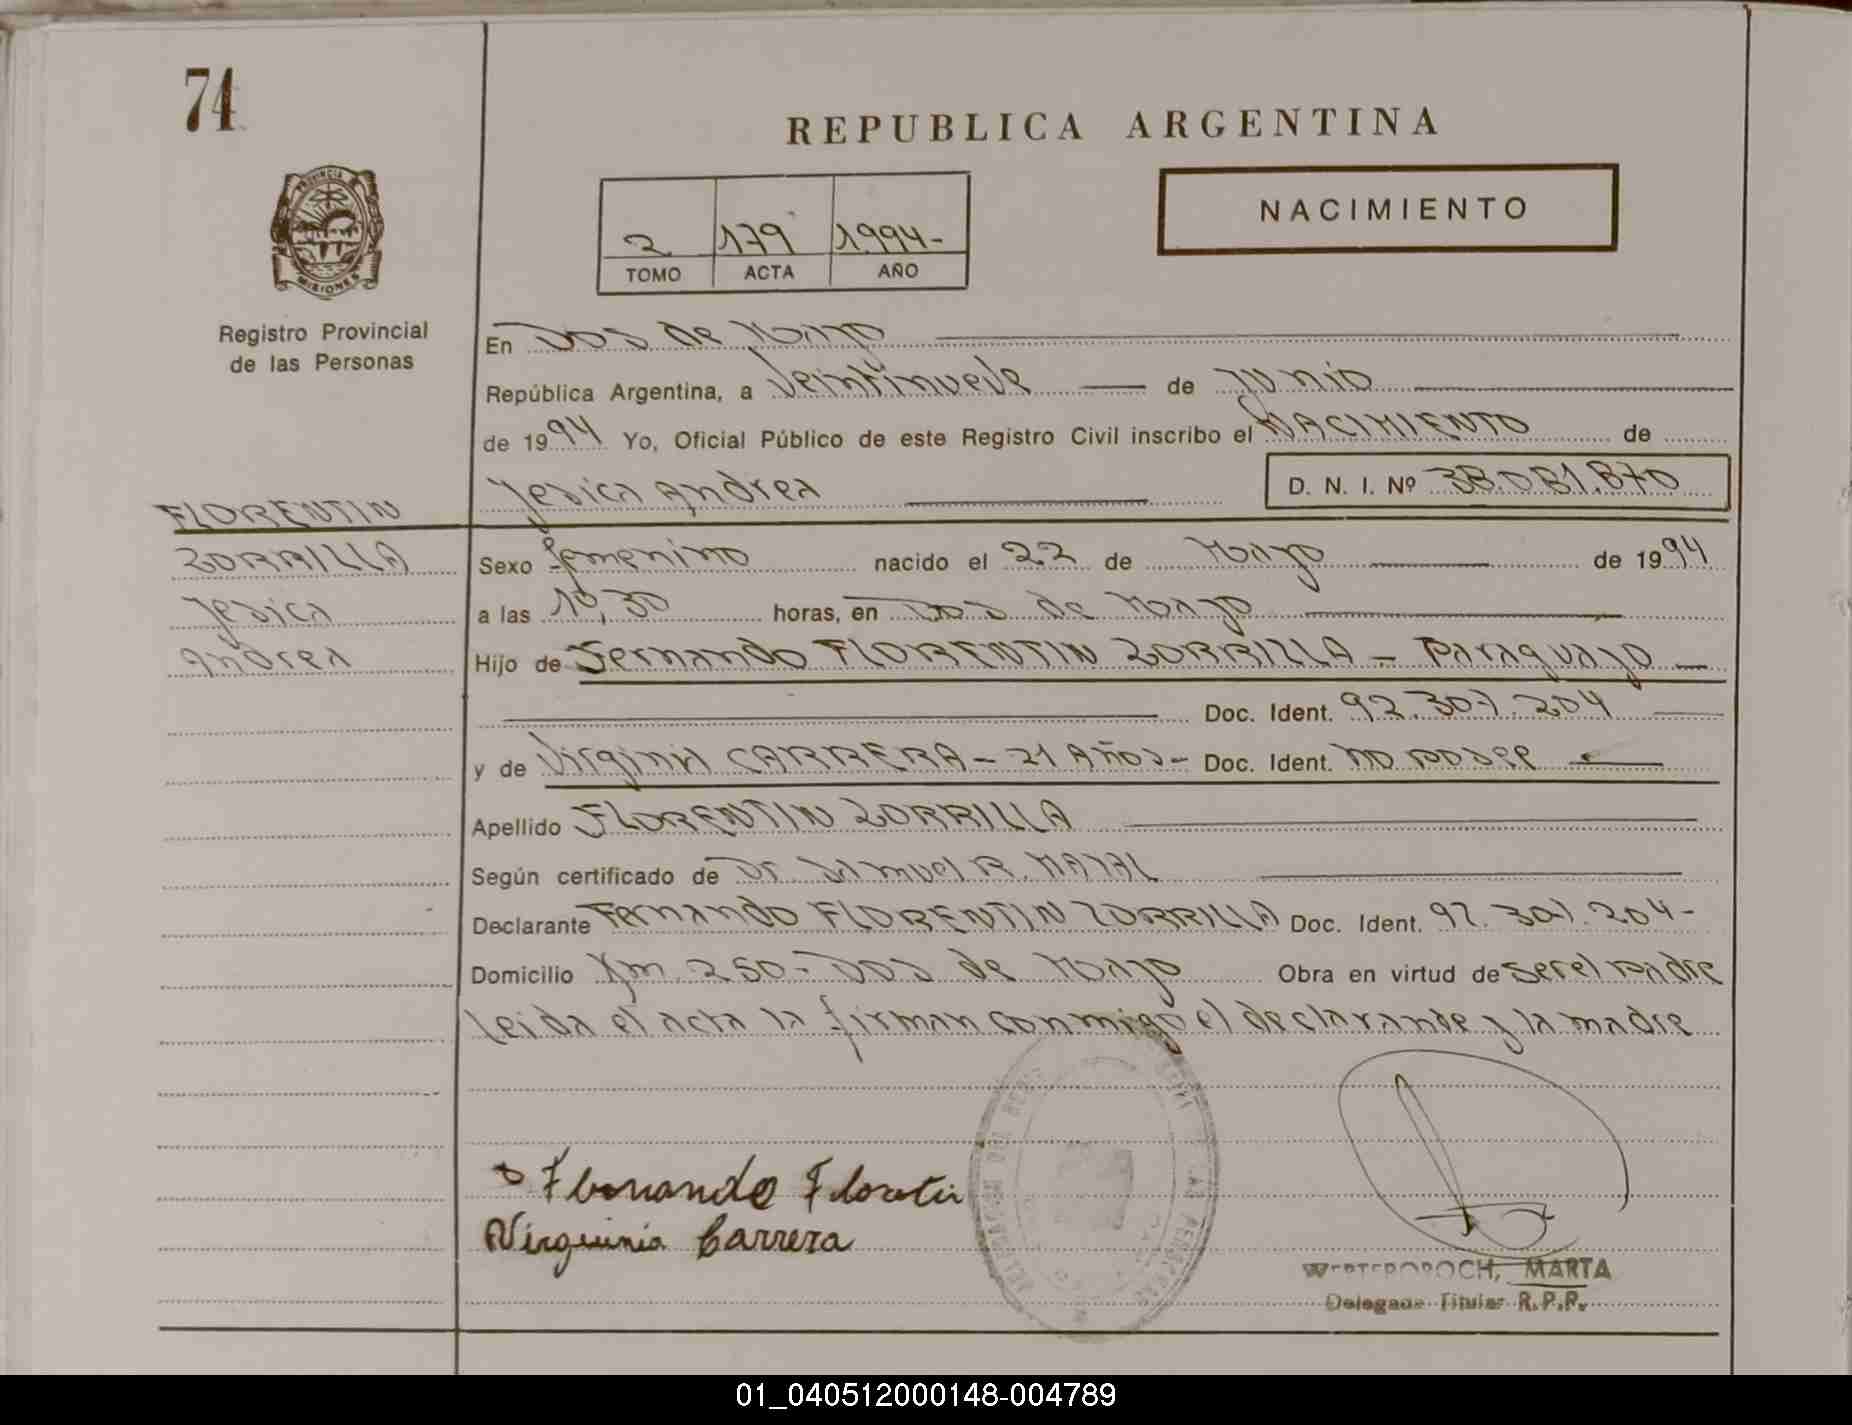 74
REPUBLICA ARGENTINA
NACIMIENTO
2 179 1994-
TOMO ACTA AÑO
PROVINCIA DE MISIONES
Registro Provincial
de las Personas
En Dos de Mayo
República Argentina, a Veintinueve de Junio
de 1994 Yo, Oficial Público de este Registro Civil inscribo el NACIMIENTO de
Jesica Andrea D. N. I. Nº 38.081.870
FLORENTIN
ZORRILLA
Jesica
Andrea
Sexo femenino nacido el 22 de Mayo de 1994
a las 10,30 horas, en Dos de Mayo
Hijo de Fernando FLORENTIN ZORRILLA - Paraguayo
Doc. Ident. 92.307.204
y de Virginia CARRERA - 21 Años - Doc. Ident. no posee
Apellido FLORENTIN ZORRILLA
Según certificado de Dr. Samuel R.
Declarante Fernando FLORENTIN ZORRILLA Doc. Ident. 92.307.204-
Domicilio Km. 250.- Dos de Mayo Obra en virtud de ser el padre
leida el acta la firman conmigo el declarante y la madre
Fernando
Virguinia Carrera
MARTA
Delegada Titular R.P.P.
01_040512000148-004789